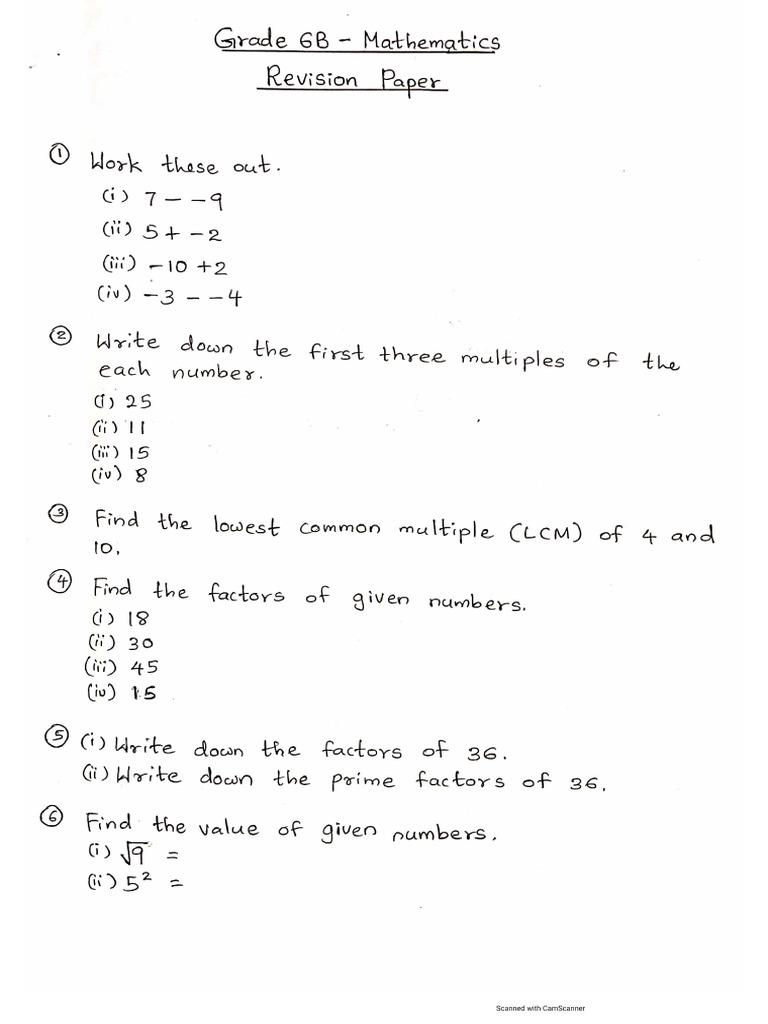 Grade 6B - Mathematics
Revision Paper
① Work these out.
(i) 7 - -9
(ii) 5 + -2
(iii) -10 +2
(iv) -3 - -4
② Write down the first three multiples of the
each number.
(i) 25
(ii) 11
(iii) 15
(iv) 8
③ Find the lowest common multiple (LCM) of 4 and
10.
④ Find the factors of given numbers.
(i) 18
(ii) 30
(iii) 45
(iv) 15
⑤ (i) Write down the factors of 36.
(ii) Write down the prime factors of 36.
⑥ Find the value of given numbers.
(i) √9 =
(ii) 5² =
Scanned with CamScanner